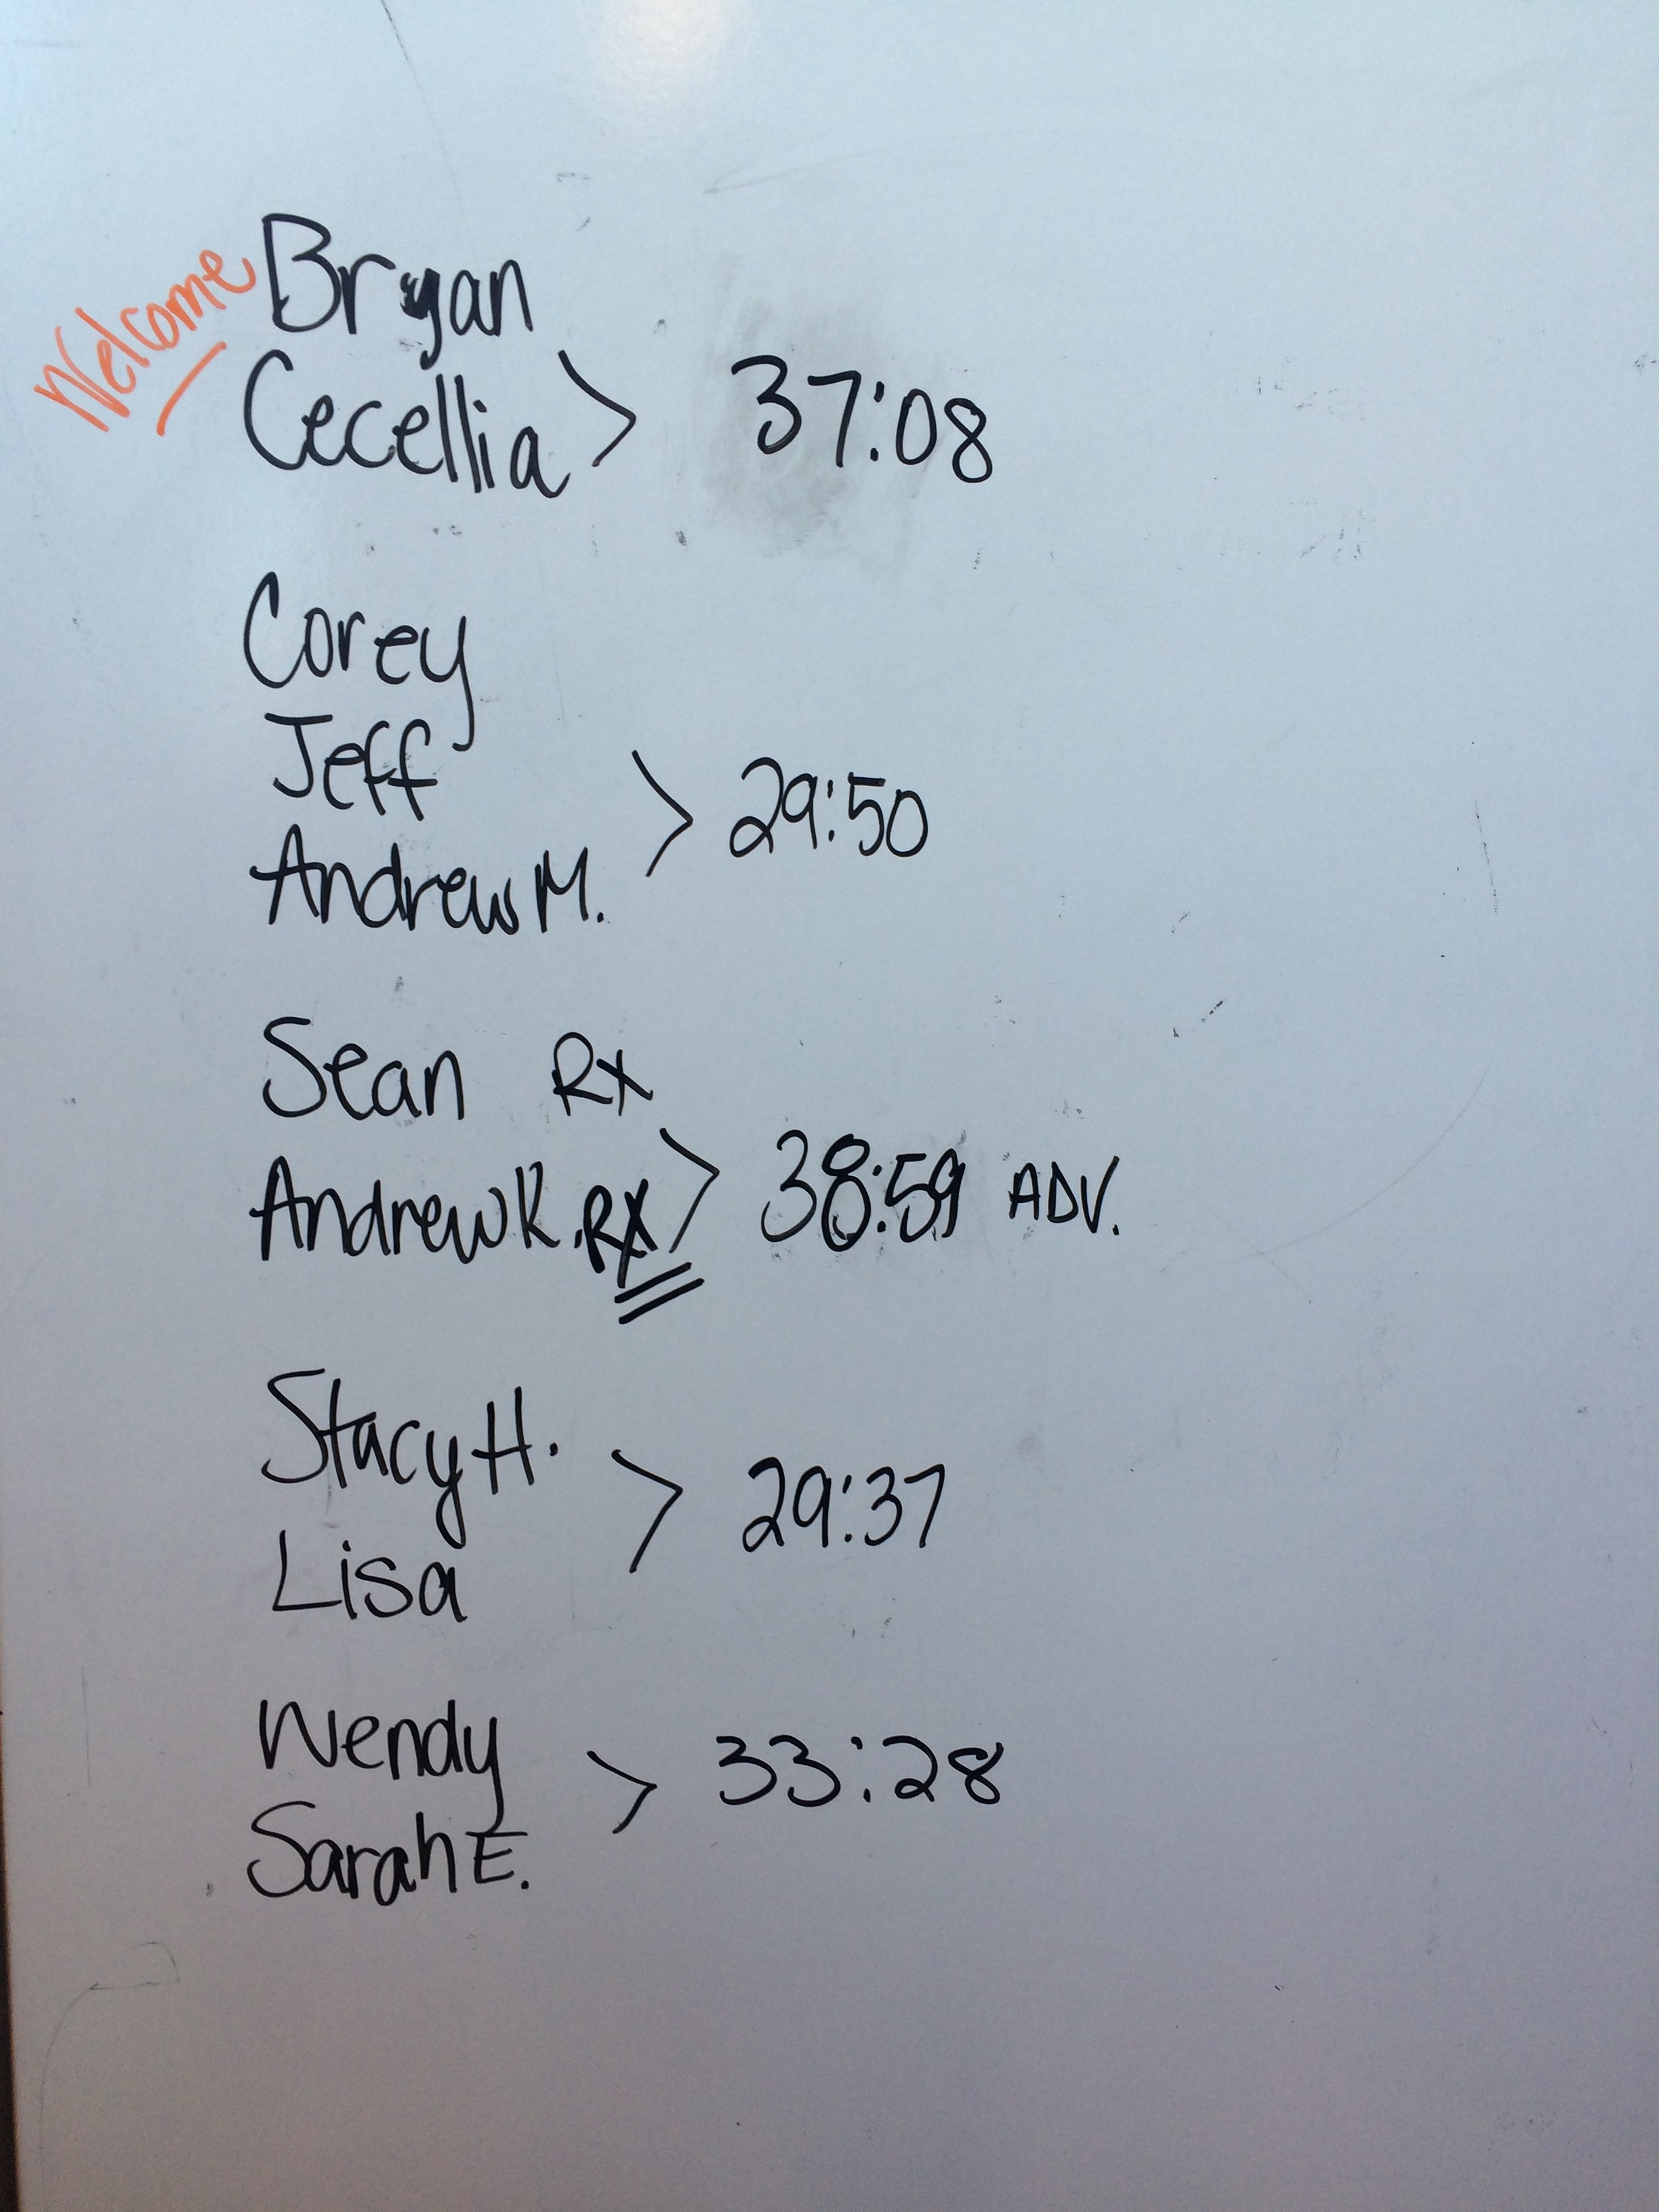 Welcome Bryan
Cecellia > 37:08
Corey
Jeff
Andrew M. > 29:50
Sean Rx
Andrew K. RX > 38:59 ADV.
Stacy H.
> 29:37
Lisa
Wendy
> 33:28
Sarah E.